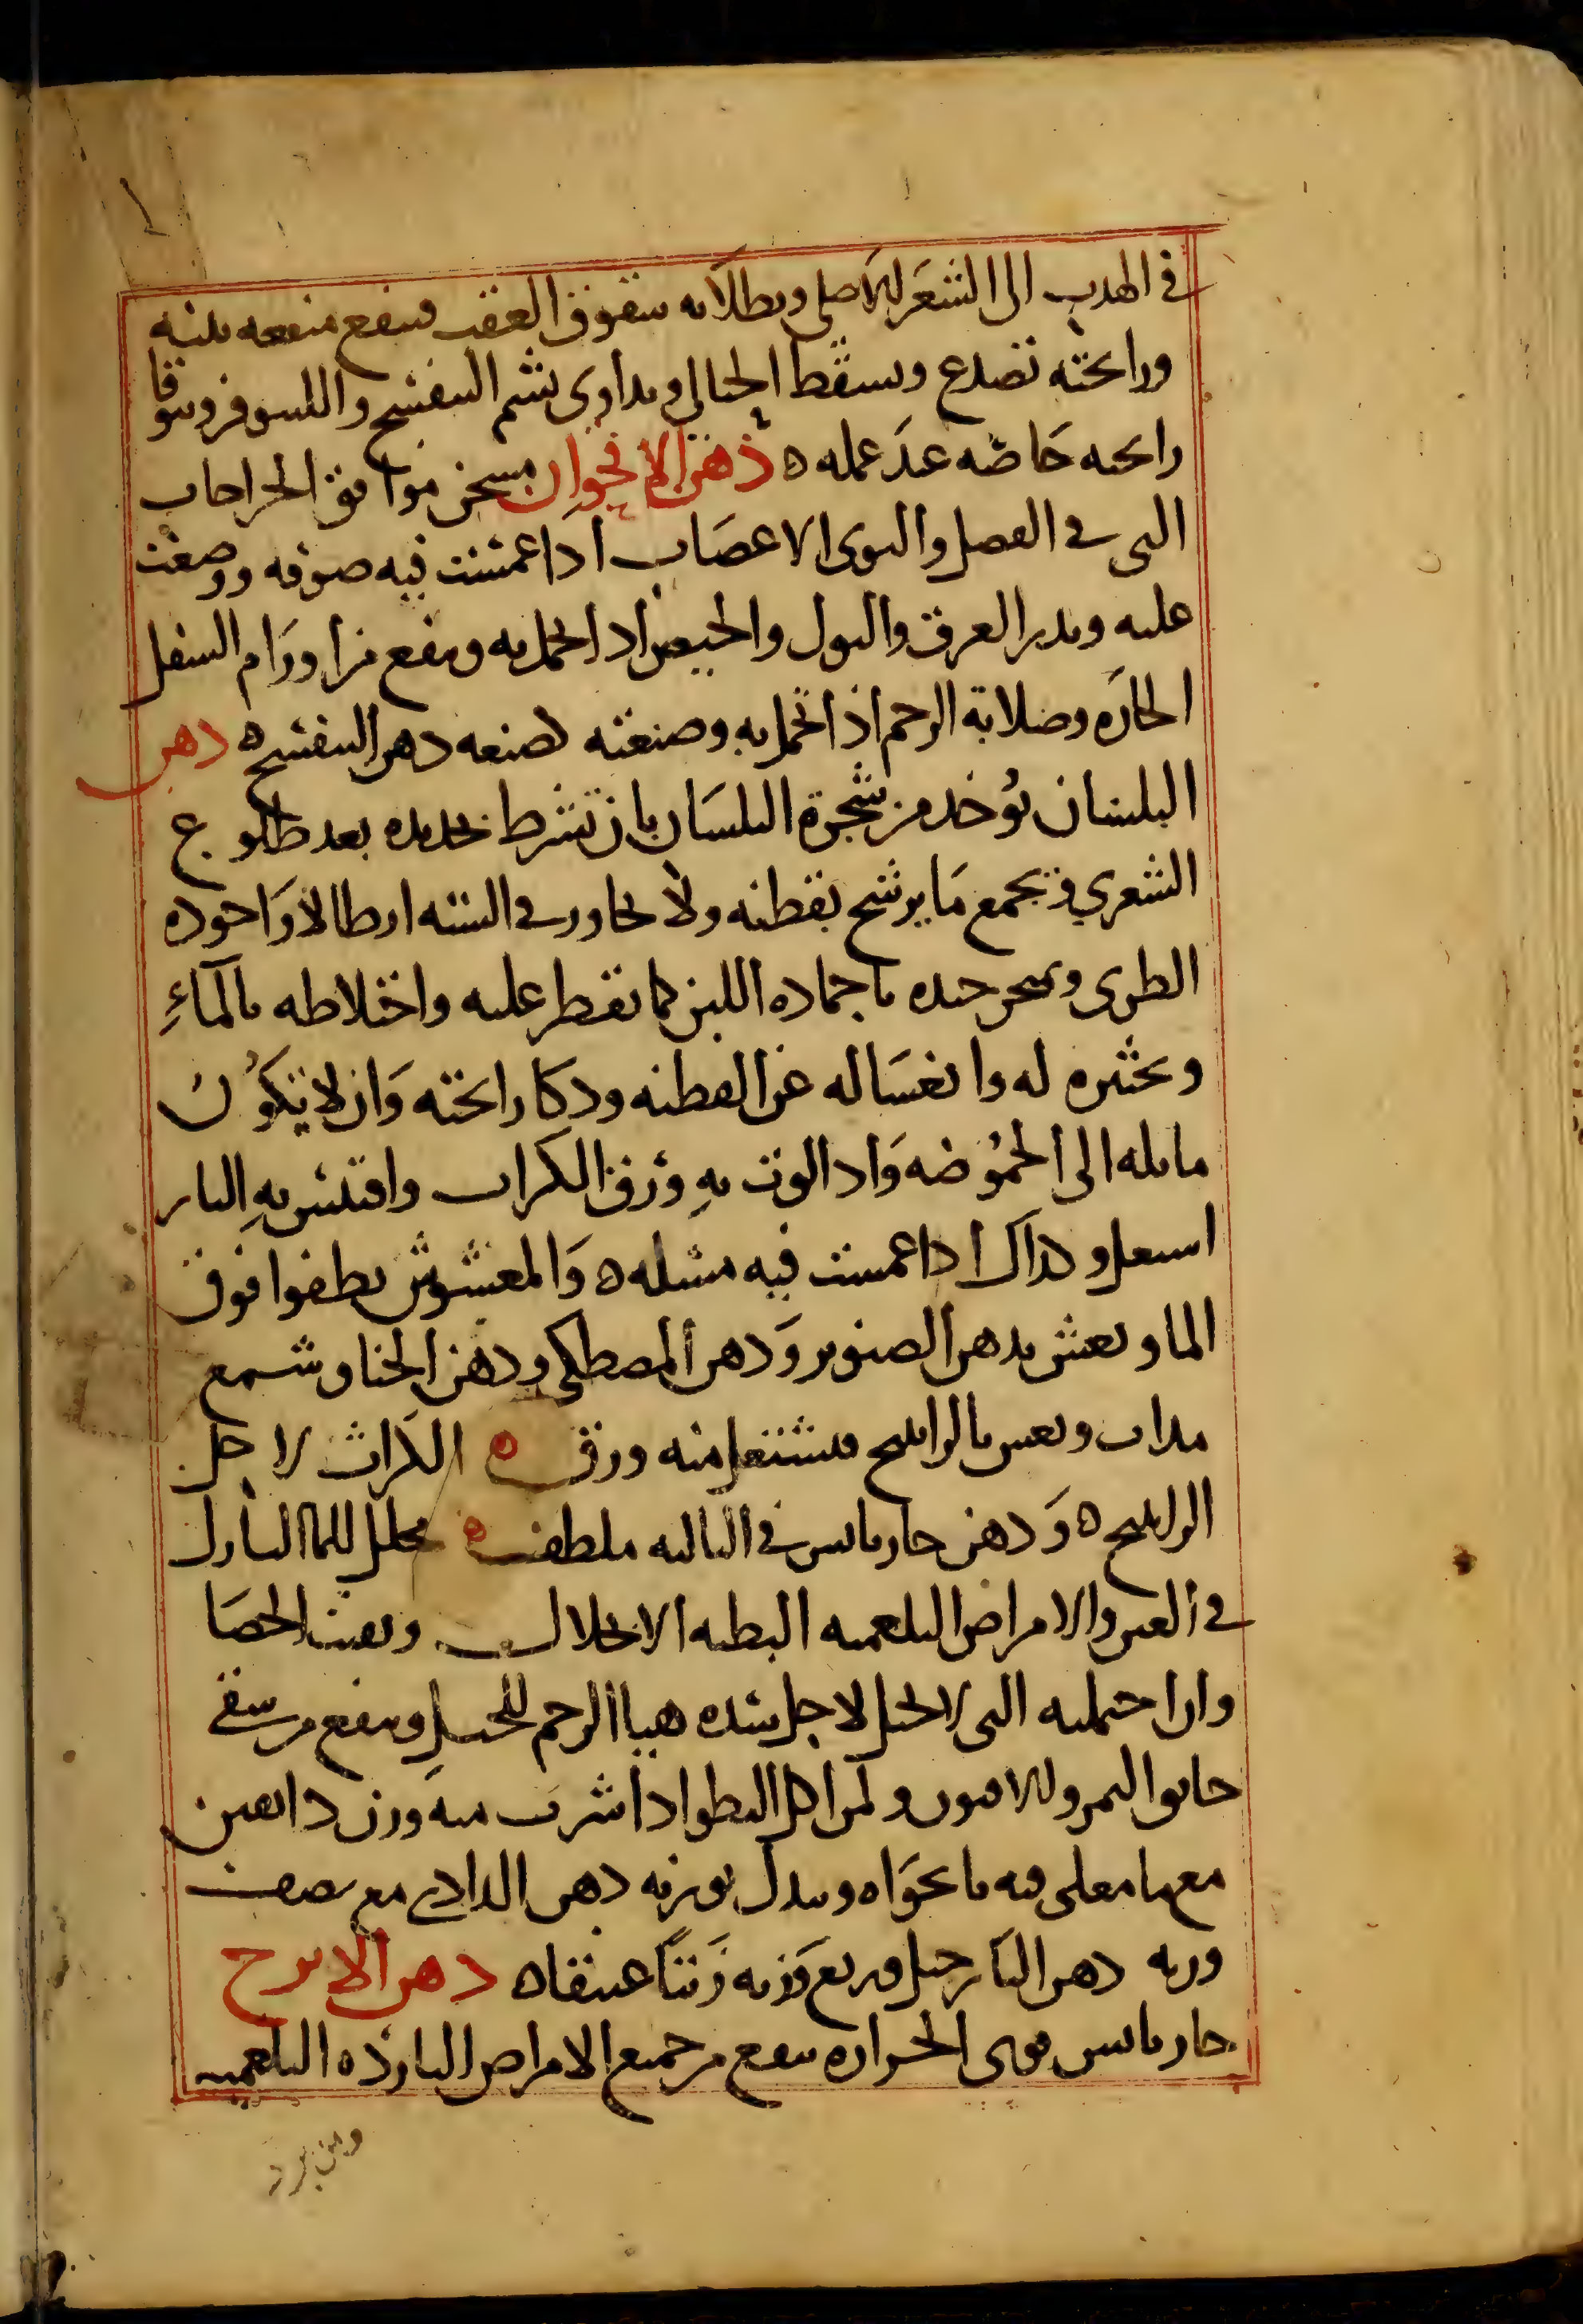 في الهدب الى الشعر للاصلي ويطلا به شقوق العقب فينفع منفعه بينه
ورايحته تصدع وتسقط الحبالى ويداوى بشم البنفسج واللينوفر ويتوقا
رايحته خاصّه عند عمله ه دهن الاقحوان مسخن موافق الجراحات
التي في العصل والتوى الاعصاب اذا غمست فيه صوفه ووضعت
عليه ويدر العرق والبول والحيض اذا تحمل به وينفع من اورام السفل
الحاره وصلابة الرحم اذا تحمل به وصنعته كصنعه دهن البنفسج ه دهن
البلسان يُوخد من شجرة البلسان بان تشرط بحديده بعد طلوع
الشعري ويجمع مَا يرشح بقطنه ولا يجاوز في السنه ارطالا وَاجوده
الطرى ويمتحن جيده باجماده اللبن كما يقطر عليه واختلاطه بالمآءِ
وتخثيره له وانغسَاله عن القطنه ودكا رايحته وَان لا يكوُن
مايله الى الحمُوضه وَاذا لوث بهِ ورق الكراث واقتبس بهِ النار
اشتعل وكذاك اذا غمست فيه مسله ه وَالمغشوش يطفوا فوق
الما ويغش بدهن الصنوبر وَدهن المصطكي ودهن الحنا وشمع
مداب ويغش بالراتينج فيشتعل منه ورق ه الكراث لاجل
الراتينج ه وَدهن حار يابس في الثالثه ملطف ه محلل للما النازل
في العين والامراض البلغميه البطيه الانحلال ويفتت الحصَا
وان احتملته التي لا تحبل لاجل شده هيا الرحم للحبل وينفع من سقي
خانق النمر وللافيون ولمن اكل الفطر اذا شرب منه وزن دانقين
مع ما مغلى فيه نانخوَاه وبدل بوزنه دهن الدادى مع نصف
وزنه دهن النارجيل وربع وَزنه زَيتًا عتيقًا ه دهن الاترج
حار يابس قوى الحراره ينفع من جميع الامراض البارده البلغميه
ومن برد